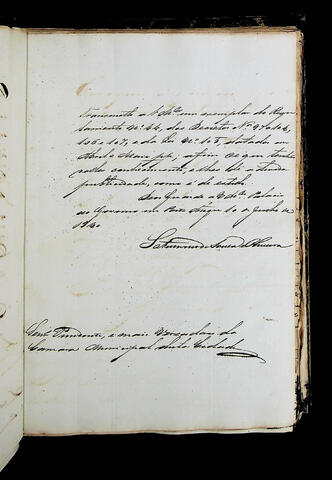 transmitto a V. M.ces um exemplar do Regu-
lamento N.º 44, dos Decretos N.os
e da Lei N.º 105, datados em
Abril e Maio p.p., a fim de que tenhão
conhecimento, e lhes dê a devida
publicidade, como é do estilo.
Deos Guarde a V. M.ces Palacio
do Governo em Porto Alegre 10 de Junho de
1840.
Saturnino de Souza e Oliveira
Snrs. Presidente, e mais Vereadores da
Camara Municipal desta Cidade